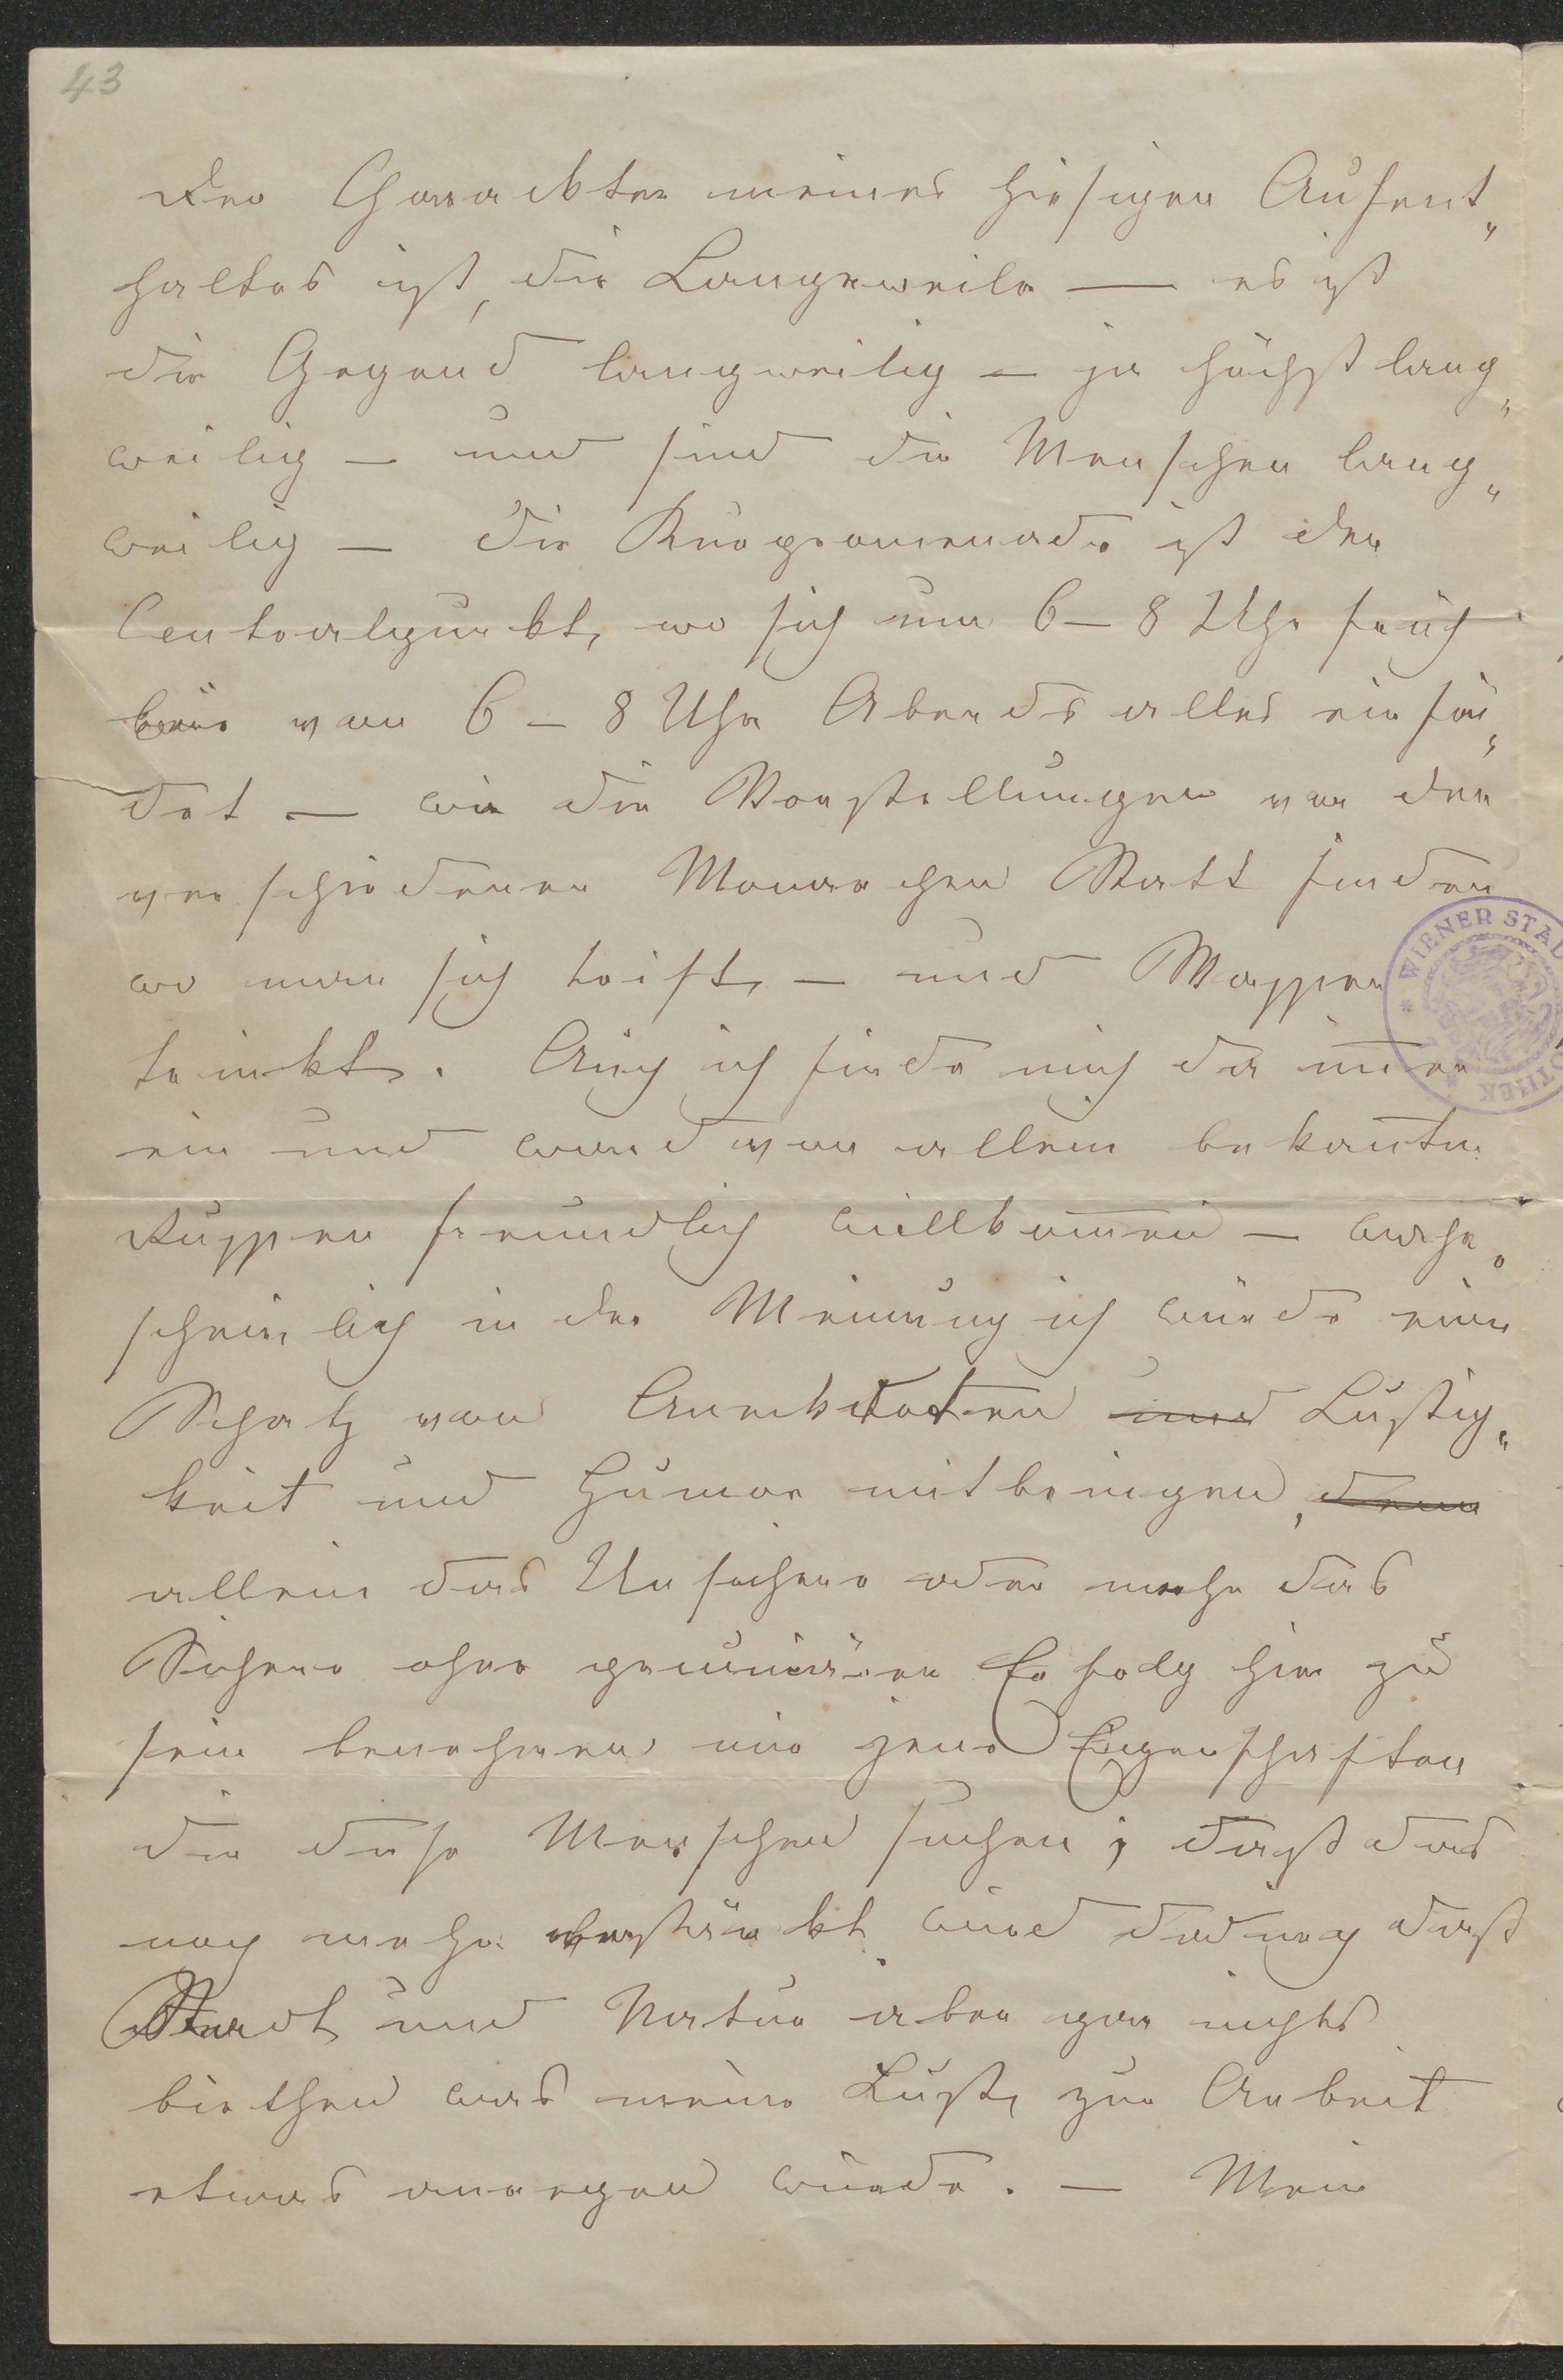 43
Der Charackter meines hiesigen Aufent„
haltes ist, die Langeweile — es ist
die Gegend langweilig — ja höchst lang„
weilig — und sind die Menschen lang„
weilig — die Kurpromenade ist der
Centralpunkt, wo sich um 6–8 Uhr früh
von 6–8 Uhr Abends alles einfin„
det — wie die Vorstellungen von den
verschiedenen Monarchen Statt finden
wo man sich trift, — und Wasser
trinkt. Auch ich finde mich da im̅er
ein und werd von allen bekan̅ten
Suppen freundlich willkom̅en — wahr„
scheinlich in der Meinung ich würde einen
Schatz von Aneckdoten und Lustig„
keit und Humor mitbringen, denn
allein das Unsichere oder mehr das
Sichere ohne pecuniären Erfolg hier zu
sein benehmen mir jene Eigenschaften
die diese Menschen suchen; daß das
noch mehr verstärkt wird dadurch daß
Stadt und Natur aber gar nichts
biethen was meine Lust, zur Arbeit
etwas anregen würde. — Mein
WIENER STAD
OTHEK